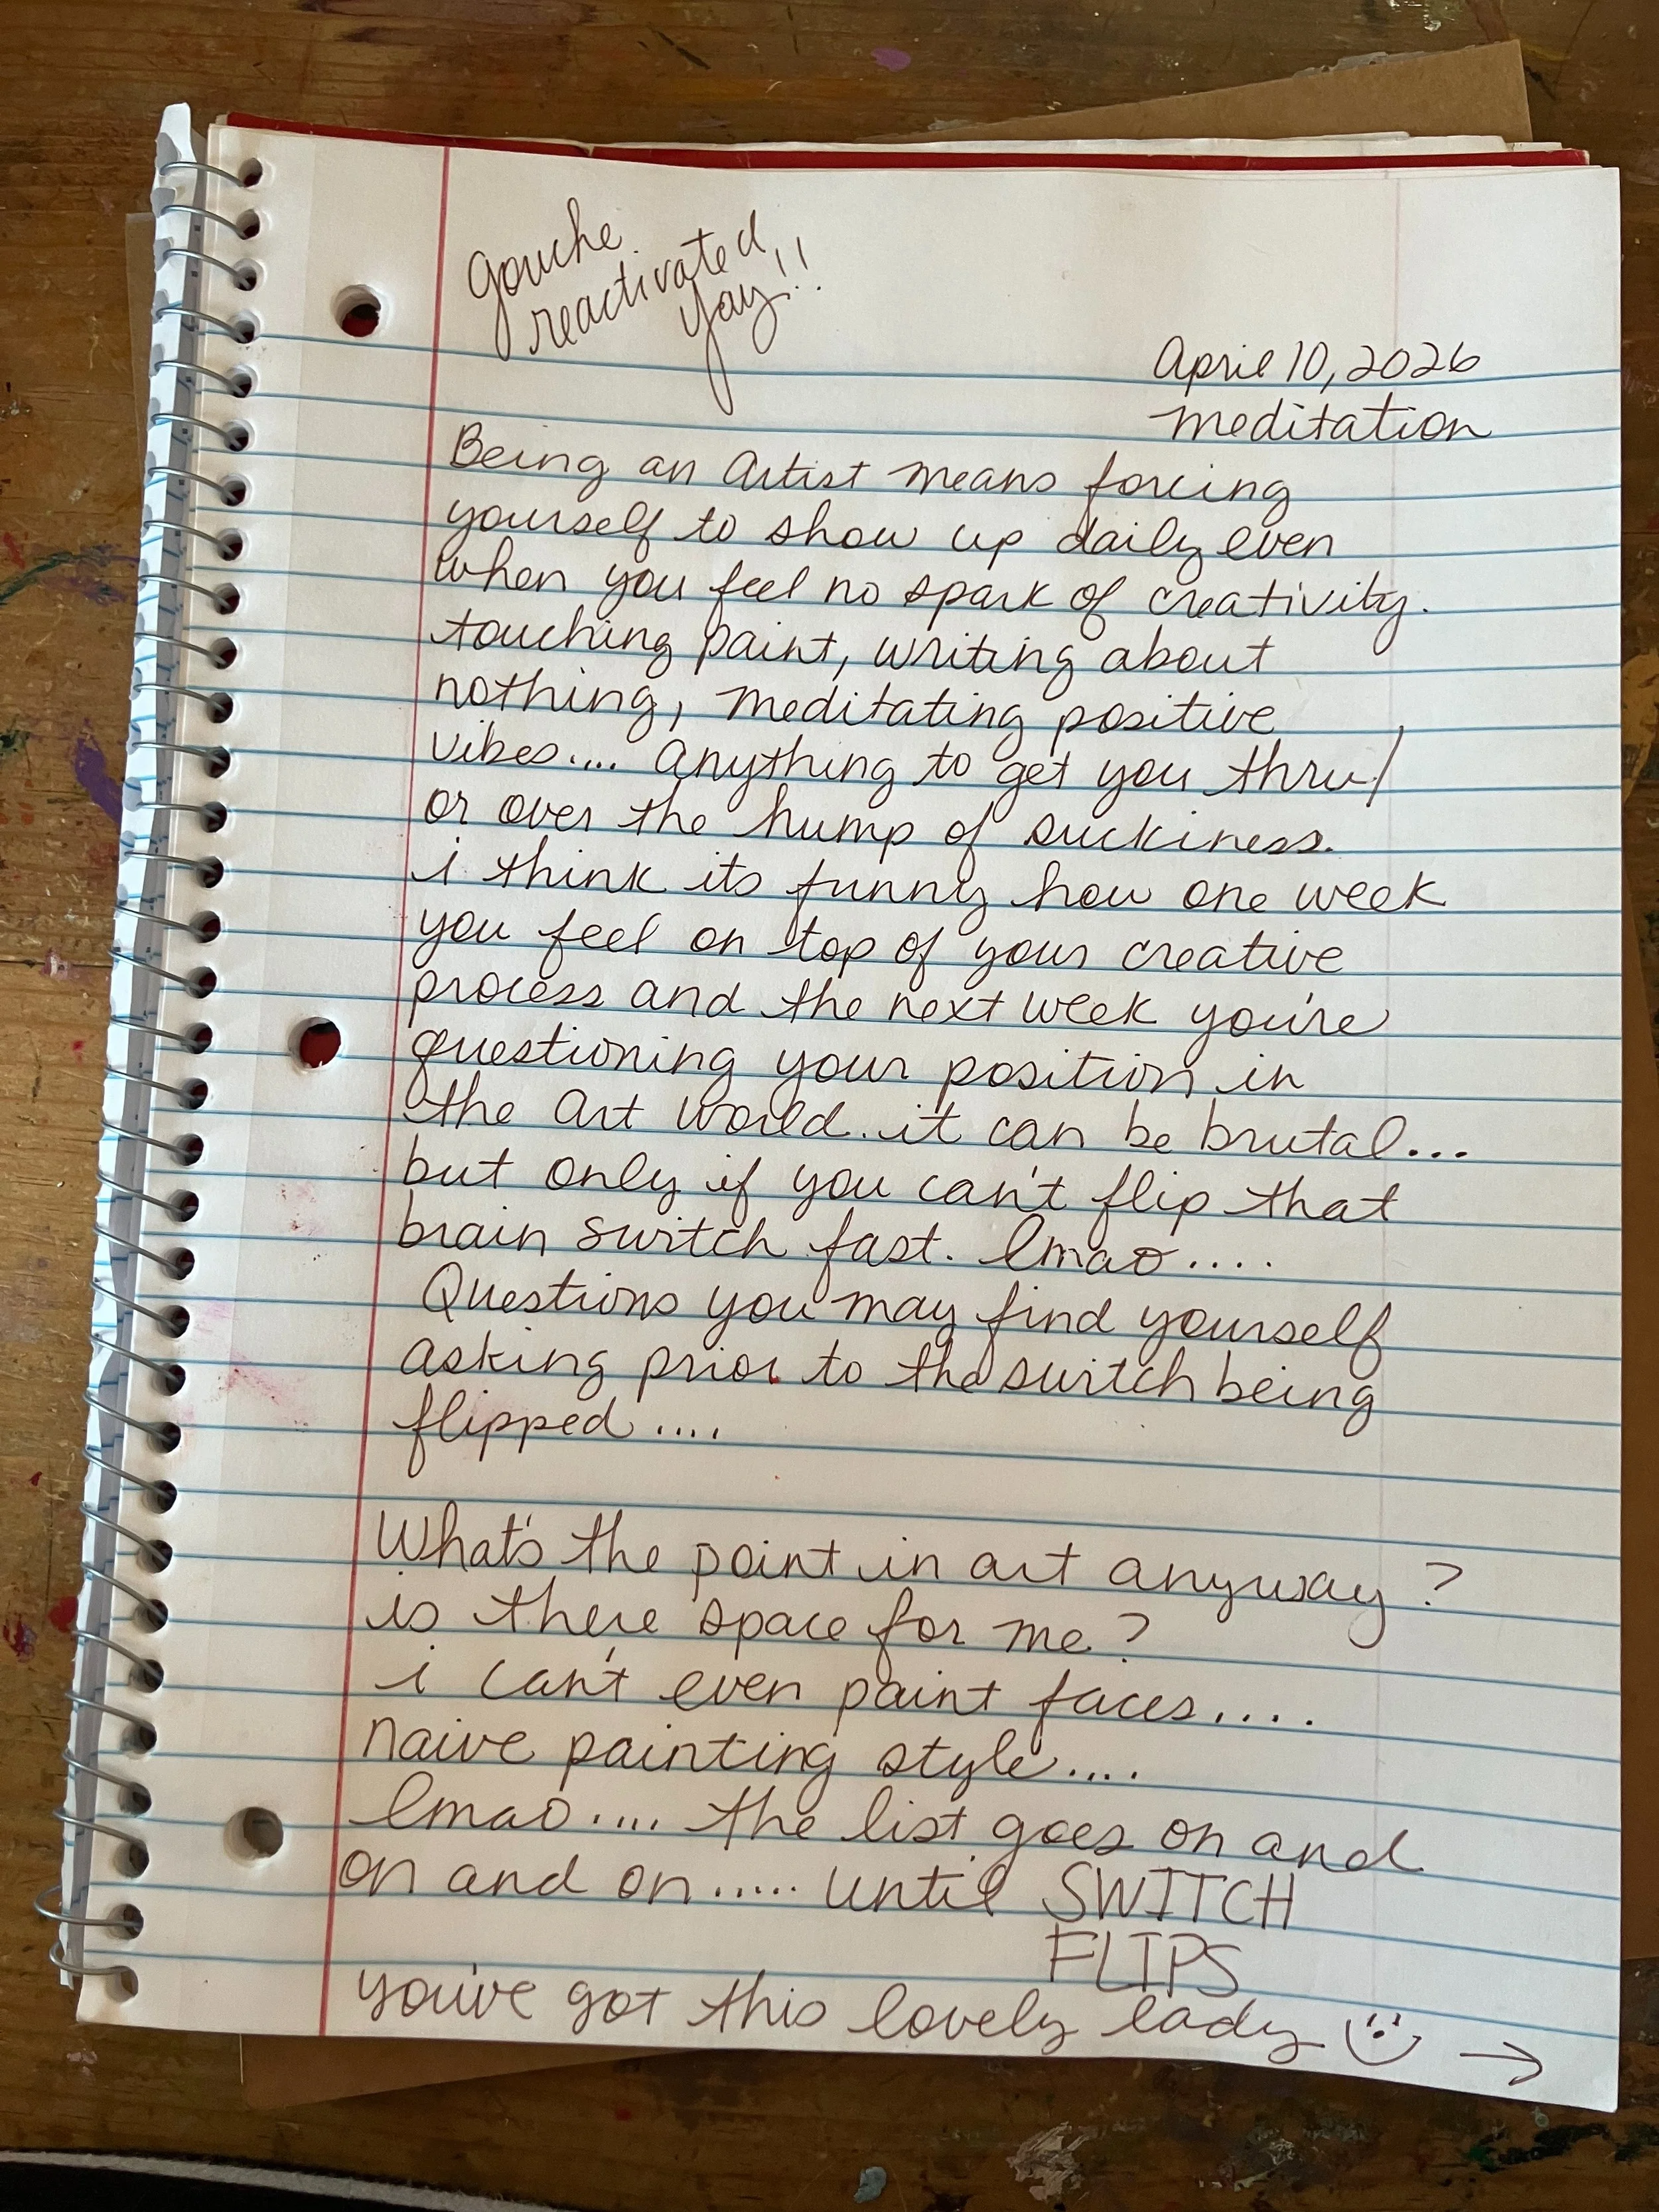 gouche
reactivated
yay!!
April 10, 2026
meditation
Being an Artist means forcing
yourself to show up daily even
when you feel no spark of creativity.
touching paint, writing about
nothing, meditating positive
vibes.... anything to get you thru/
or over the hump of suckiness.
i think its funny how one week
you feel on top of your creative
process and the next week you're
questioning your position in
the art world..it can be brutal...
but only if you can't flip that
brain switch fast. lmao....
Questions you may find yourself
asking prior to the switch being
flipped....
What's the point in art anyway?
is there space for me?
i can't even paint faces....
naive painting style....
lmao.... the list goes on and
on and on..... until SWITCH
FLIPS
you've got this lovely lady →